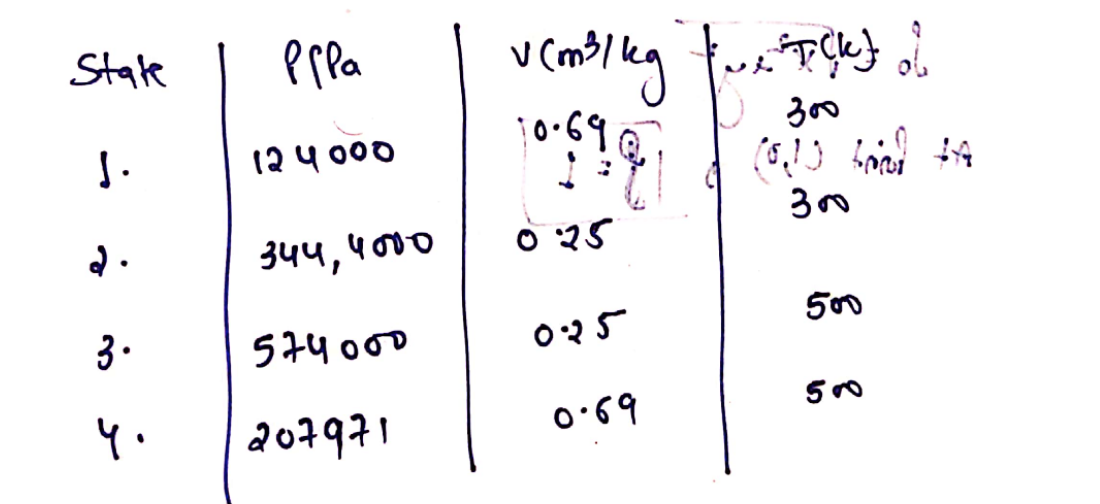 State P(Pa V(m³/kg T(k)
1. 124000 0.69 300
2. 344,4000 0.25 300
3. 574000 0.25 500
4. 207971 0.69 500